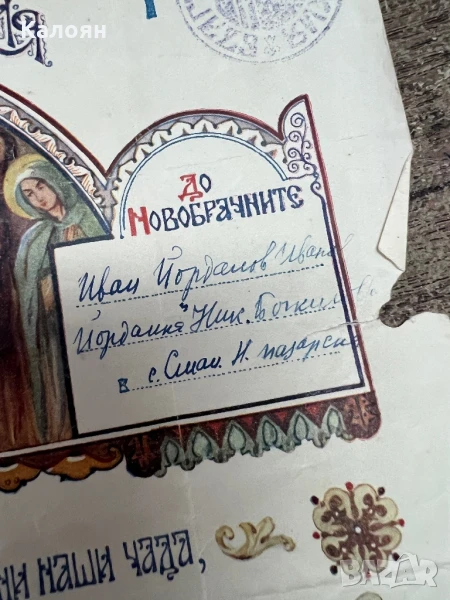 Калоян
До
Новобрачните
Иван Йорданов Иванов
Йорданка Ник. Божилова
в с. Стан Н. пазарско
ни наши чада,
BAZAR